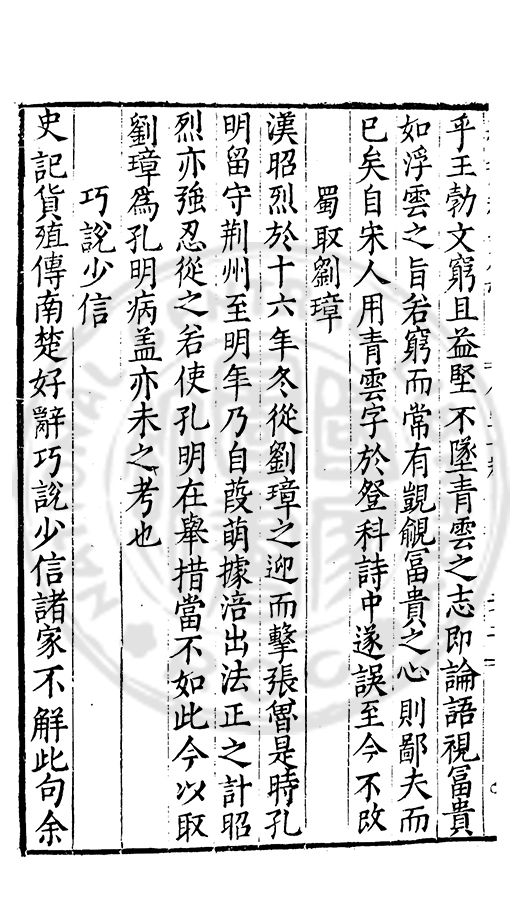 乎王勃文窮且益堅不墜青雲之志即論語視冨貴
如浮雲之旨若窮而常有覬覦冨貴之心則鄙夫而
已矣自宋人用青雲字於登科詩中遂誤至今不改
蜀取劉璋
漢昭烈於十六年冬從劉璋之迎而擊張魯是時孔
明留守荆州至明年乃自葭萌據涪出法正之計昭
烈亦強忍從之若使孔明在舉措當不如此今以取
劉璋為孔明病盖亦未之考也
巧說少信
史記貨殖傳南楚好辭巧說少信諸家不解此句余